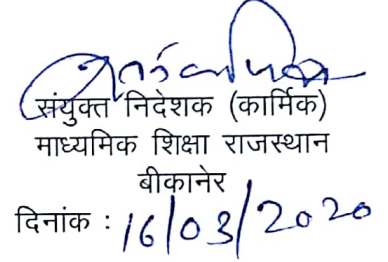 संयुक्त निदेशक (कार्मिक)
माध्यमिक शिक्षा राजस्थान
बीकानेर
दिनांक : 16/03/2020